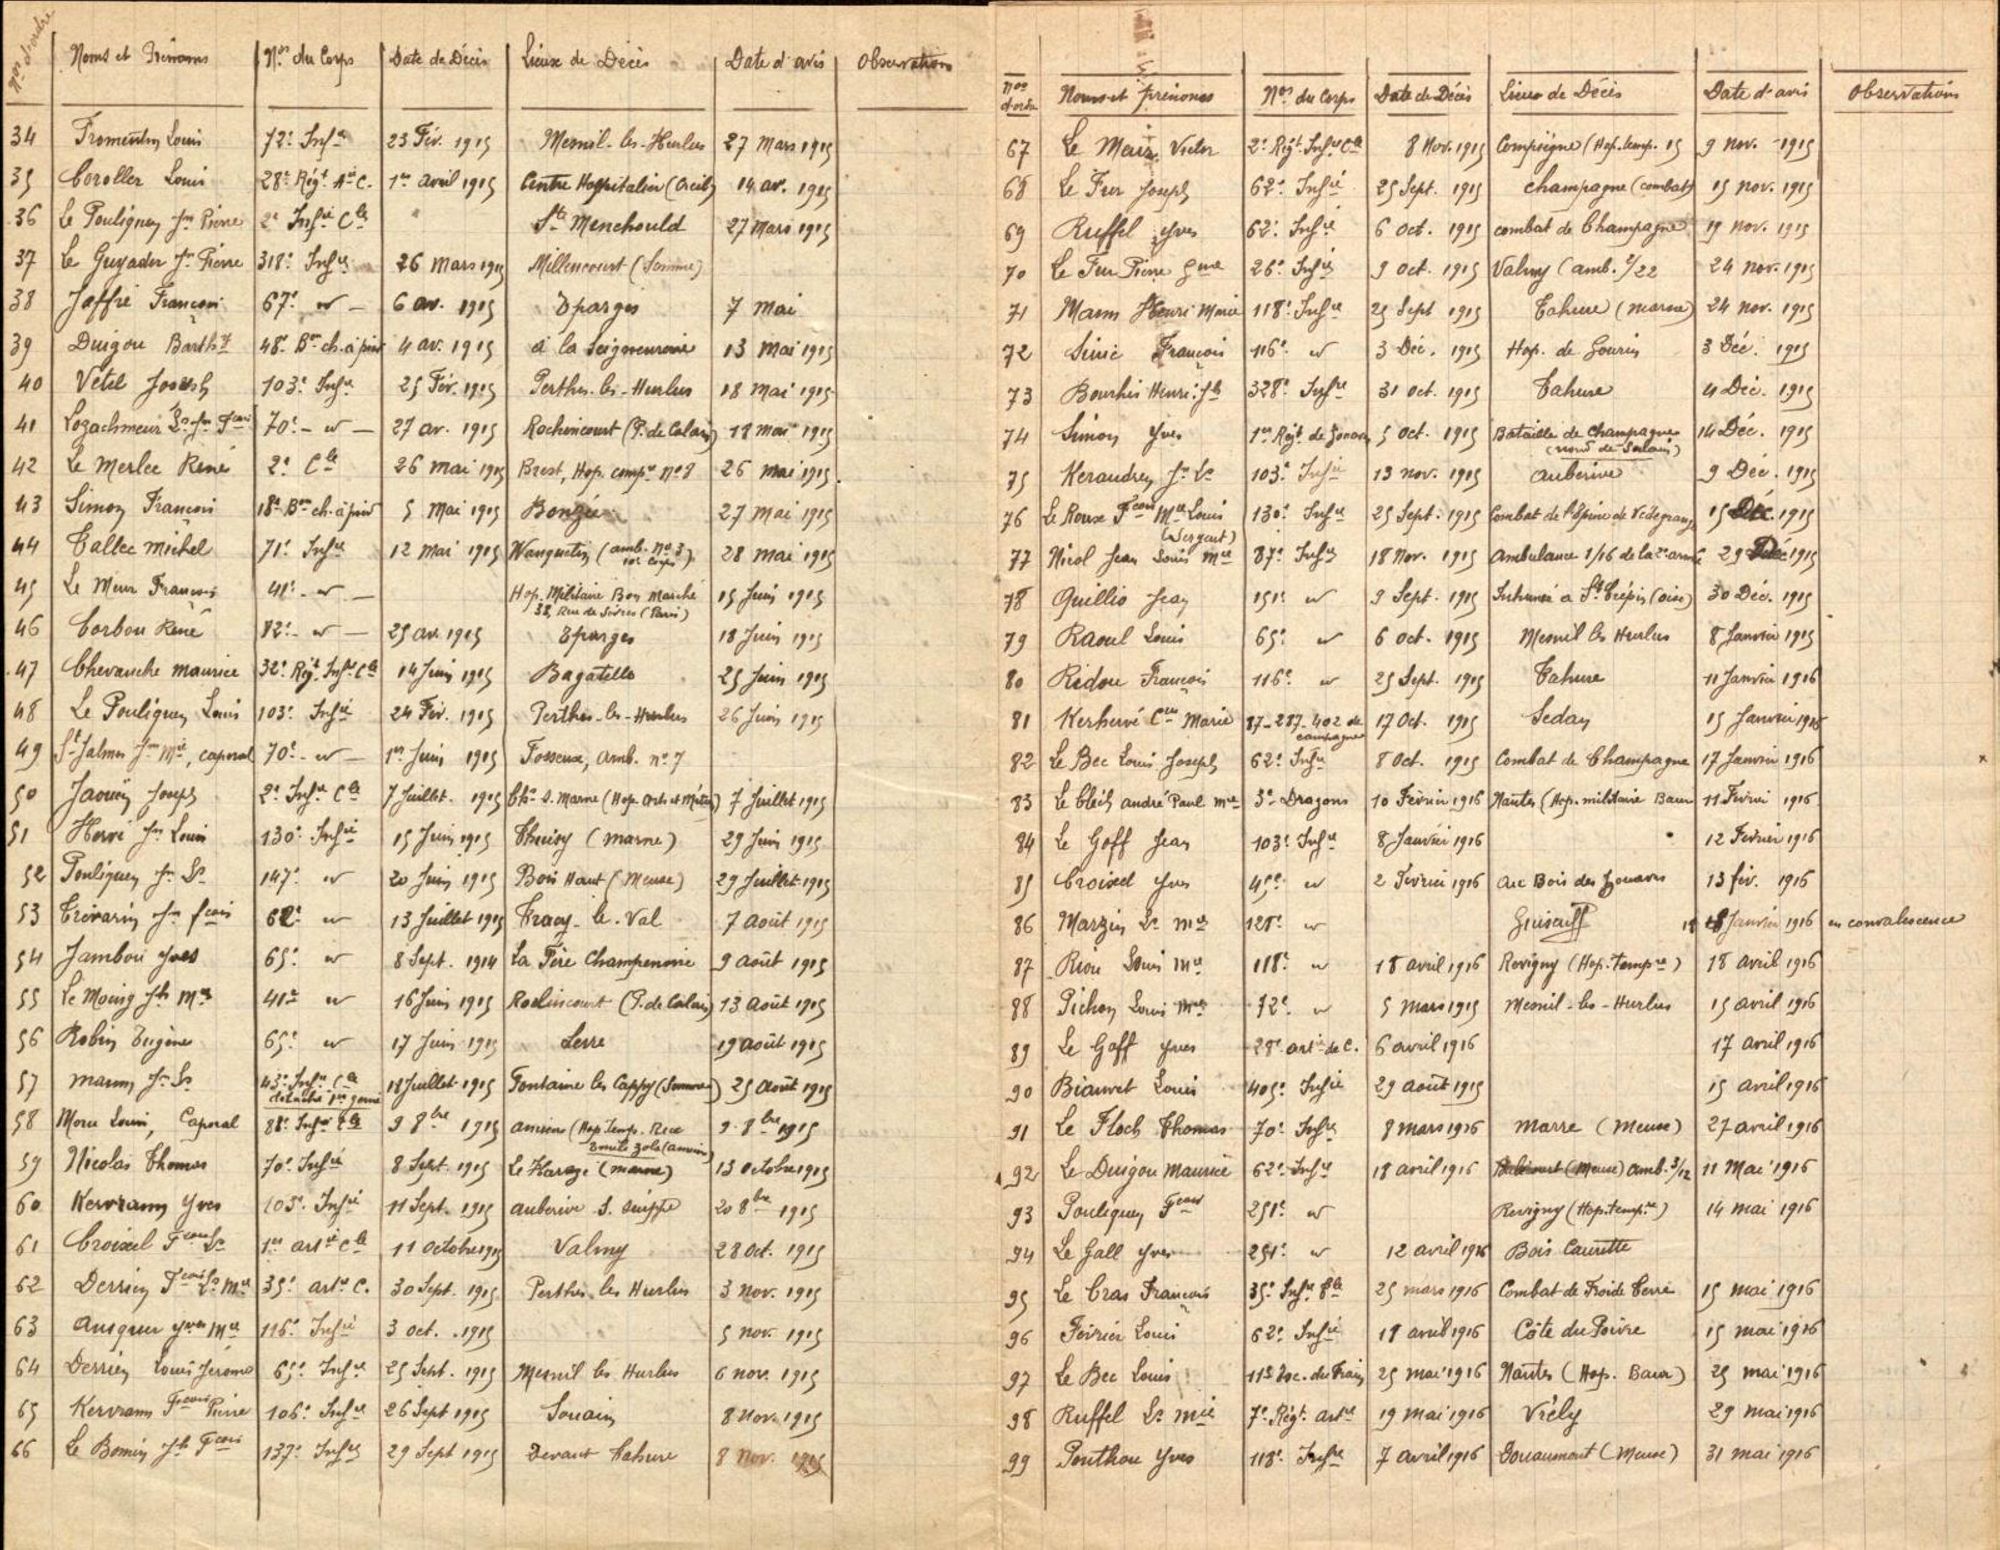 Nos d'ordre Noms et Prénoms Nos du Corps Date de Décès Lieux de Décès Date d'avis Observations
34 Fromentin Louis 72e Infie 23 Fév. 1915 Mesnil-les-Hurlus 27 Mars 1915
35 Coroller Louis 28e Régt Aie C. 1er avril 1915 Centre Hospitalier 14 av. 1915
36 Le Pouliquen Jn Pierre 2e Infie Cle " Ste Menehould 27 Mars 1915
37 Le Guyader Jn Pierre 318e Infie 26 Mars 1915 Millencourt (Somme)
38 Jaffré François 67e - " - 6 av. 1915 Eparges 7 Mai
39 Duigou Barthy 48e Bon ch. à pied 4 av. 1915 à la Seigneurerie 13 Mai 1915
40 Vétel Joseph 103e Infie 25 Fév. 1915 Perthes-les-Hurlus 18 Mai 1915
41 Lozachmeur Ls Jn Fçois 70e - " - 27 av. 1915 Rochincourt (P. de Calais) 18 mai 1915
42 Le Merlec René 2e Cle 26 mai 1915 Brest, Hop. compre No 8 26 mai 1915
43 Simon François 18e Bon ch. à pied 5 Mai 1915 27 mai 1915
44 Tallec Michel 71e Infie 12 Mai 1915 Wanquetin (amb. No 3) 28 mai 1915
45 Le Meur François 41e - " - Hop. Militaire Bon Marché 15 Juin 1915
38, Rue de Sèvres (Paris)
46 Corbou René 82e - " - 25 av. 1915 Eparges 18 Juin 1915
47 Chevanche Maurice 32e Régt Infie Cle 14 Juin 1915 Bagatelle 25 Juin 1915
48 Le Pouliquen Louis 103e Infie 24 Fév. 1915 Perthes-les-Hurlus 26 Juin 1915
49 St Jalmes Jn Mie, caporal 70e - " - 1er Juin 1915 Fosseux, Amb. no 7
50 Jaouën Joseph 2e Infie Cle 7 Juillet 1915 Chs. s. Marne (Hop. Arts et Métiers) 7 Juillet 1915
51 Hervé Jn Louis 130e Infie 15 Juin 1915 Thuisy (Marne) 29 Juin 1915
52 Pouliquen Jn Ls 147e " 20 Juin 1915 Bois Haut (Meuse) 29 Juillet 1915
53 Trévarin Jn fçois 62e " 13 Juillet 1915 Tracy-le-Val 7 Août 1915
54 Jambou Yves 65e " 8 Sept. 1914 La Fère Champenoise 9 août 1915
55 Le Moing Jh Mie 41e " 16 Juin 1915 Roclincourt (P. de Calais) 13 Août 1915
56 Robin Eugène 65e " 17 Juin 1915 Serre 19 août 1915
57 Mann Jn Ls 43e Infie Cle 18 Juillet 1915 Fontaine les Cappy (Somme) 25 Août 1915
58 Moru Louis, Caporal 88e Infie Cle 9 8bre 1915 amiens (Hop. Temp. Rue 9 8bre 1915
Emile Zola (amiens)
59 Nicolas Thomas 70e Infie 8 Sept. 1915 Le Harazé (marne) 13 octobre 1915
60 Kervrann Yves 103e Infie 11 Sept. 1915 auberive s. suippe 20 8bre 1915
61 Croizel Fçois Ls 1er artie Cle 11 Octobre 1915 Valmy 28 Oct. 1915
62 Derrien Fçois Ls Mie 35e artie C. 30 Sept. 1915 Perthes les Hurlus 3 Nov. 1915
63 Ansquer Yves Mie 116e Infie 3 oct. 1915 5 nov. 1915
64 Derrien Louis Jérôme 65e Infie 25 Sept. 1915 Mesnil les Hurlus 6 nov. 1915
65 Kervrann Fçois Pierre 106e Infie 26 Sept 1915 Souain 8 Nov. 1915
66 Le Bomin Jh Fçois 137e Infie 29 Sept 1915 Devant Tahure 8 Nov. 1915
Nos d'ordre Noms et prénoms Nos du Corps Date de Décès Lieux de Décès Date d'avis Observations
67 Le Meur Victor 2e Régt Infie Cle 8 Nov. 1915 Compiègne (Hop. temp. 15 9 nov. 1915
68 Le Fur Joseph 62e Infie 25 Sept. 1915 Champagne (combat) 15 nov. 1915
69 Ruffel Yves 62e Infie 6 Oct. 1915 combat de Champagne 19 nov. 1915
70 Le Fur Pierre Gme 26e Infie 9 Oct. 1915 Valmy (amb. 2/22 24 nov. 1915
71 Mann Henri Marie 118e Infie 25 Sept 1915 Tahure (marne) 24 nov. 1915
72 Sinic François 116e " 3 Déc. 1915 Hop. de Gourin 3 Déc. 1915
73 Bourhis Henri Jh 328e Infie 31 Oct. 1915 Tahure 4 Déc. 1915
74 Simon Yves 1er Régt de Zouaves 5 Oct. 1915 Bataille de Champagne 14 Déc. 1915
(nord de Souain)
75 Keraudren Jn Ls 103e Infie 13 nov. 1915 auberive 9 Déc. 1915
76 Le Roux Fçois Mie Louis 130e Infie 25 Sept. 1915 Combat de l'Epine de Védegrange 15 Déc. 1915
(Sergent)
77 Nicol Jean Louis Mie 87e Infie 18 Nov. 1915 Ambulance 1/16 de la 2e armée 29 Déc 1915
78 Quillio Jean 151e " 9 Sept. 1915 Inhumé à St Crépin (oise) 30 Déc. 1915
79 Raoul Louis 65e " 6 Oct. 1915 Mesnil les Hurlus 8 Janvier 1915
80 Ridou François 116e " 25 Sept. 1915 Tahure 11 Janvier 1916
81 Kerhervé Cin Marie 87-287-402 de 17 Oct. 1915 Sedan 15 Janvier 1916
campagne
82 Le Bec Louis Joseph 62e Infie 8 Oct. 1915 Combat de Champagne 17 Janvier 1916
83 Le Cleïh andré Paul Mie 3e Dragons 10 Février 1916 Nantes (Hop. militaire Baur 11 Février 1916
84 Le Goff Jean 103e Infie 8 Janvier 1916 12 Février 1916
85 Croixel Yves " 2 Février 1916 au Bois des Zouaves 13 fév. 1916
86 Marzin Ls Mie 128e " Guiscriff Janvier 1916 en convalescence
87 Riou Louis Mie 118e " 18 avril 1916 Revigny (Hop. tempre) 18 avril 1916
88 Pichon Louis Mie 72e " 5 mars 1915 Mesnil-les-Hurlus 15 avril 1916
89 Le Goff Yves 28e artie de C. 6 avril 1916 17 avril 1916
90 Biannet Louis 405e Infie 29 août 1915 15 avril 1916
91 Le Floch Thomas 70e Infie 8 mars 1916 Marre (Meuse) 27 avril 1916
92 Le Duigou Maurice 62e Infie 18 avril 1916 (Meuse) amb. 3/12 11 Mai 1916
93 Pouliquen Fçois 251e " Revigny (Hop. tempre) 14 mai 1916
94 Le Gall Yves 251e " 12 avril 1916 Bois Caurette
95 Le Cras François 35e Infie Cle 25 mars 1916 Combat de Froide Terre 15 mai 1916
96 Février Louis 62e Infie 18 avril 1916 Côte du Poivre 15 mai 1916
97 Le Bec Louis 11e Esc. du Train 25 mai 1916 Nantes (Hop. Baur) 25 mai 1916
98 Ruffel Ls Mie 7e Régt. artie 19 mai 1916 Vrély 29 mai 1916
99 Ponthou Yves 118e Infie 7 avril 1916 Douaumont (Meuse) 31 mai 1916